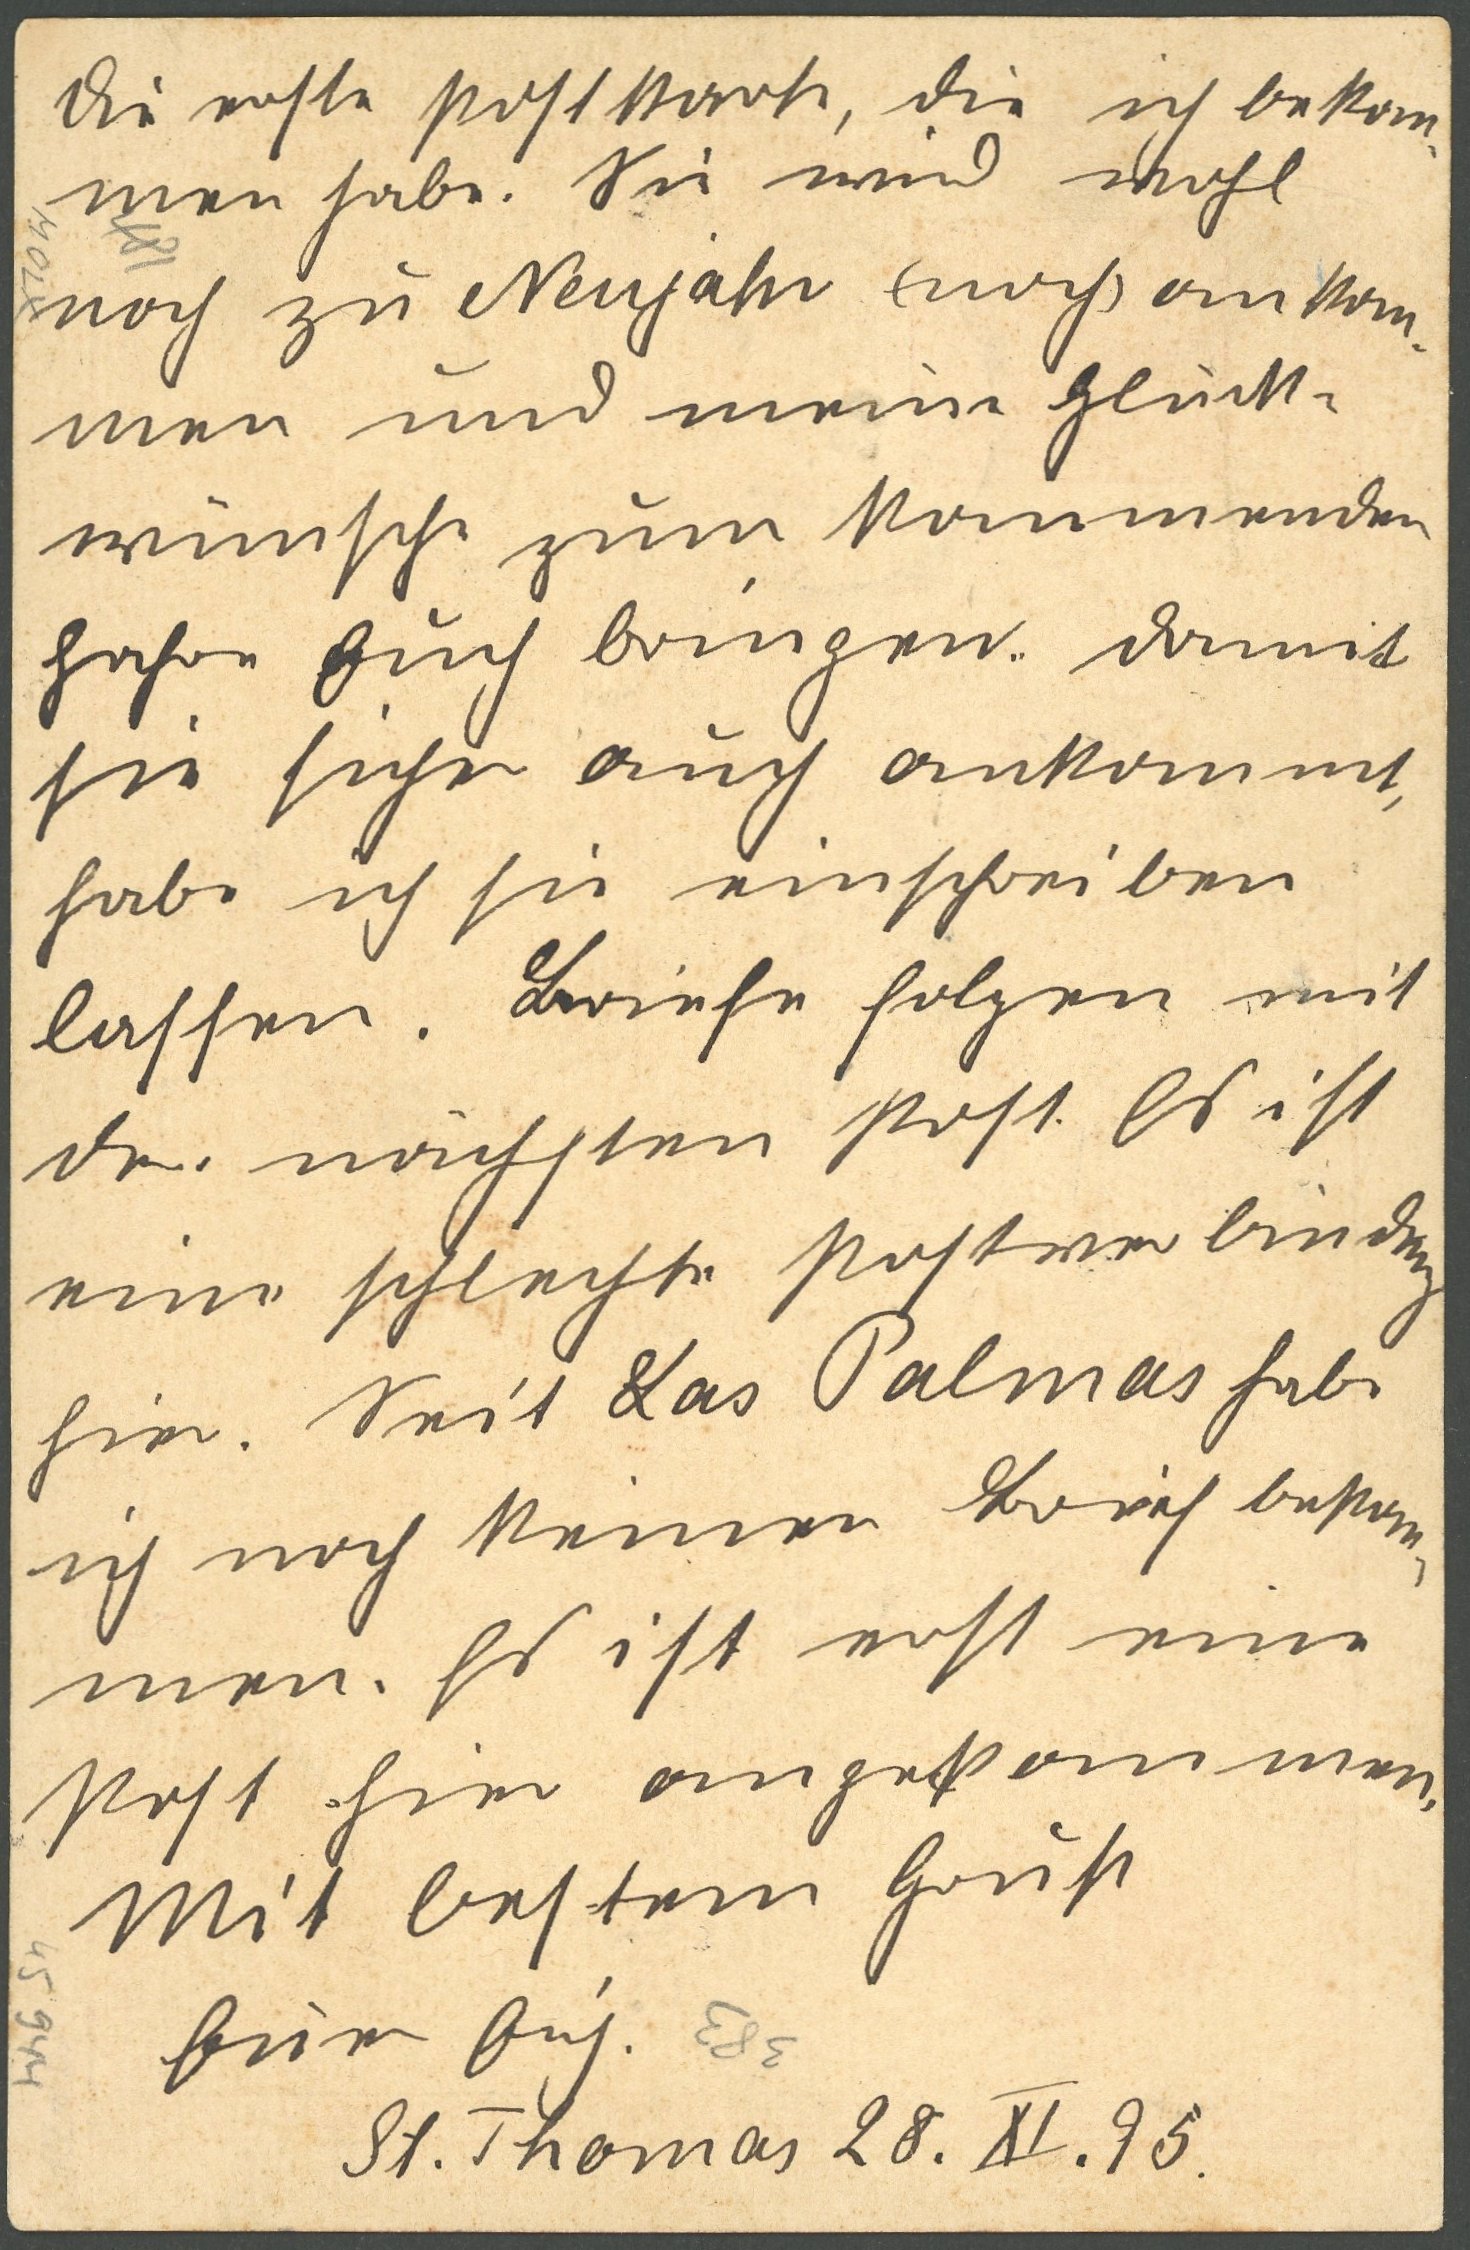 Die erste Postkarte, die ich bekom-
men habe. Sie wird wohl
noch zu Neujahr (noch) ankom-
men und meine Glück-
wünsche zum kommenden
Jahre Euch bringen. Damit
sie sicher auch ankommt,
habe ich sie einschreiben
lassen. Briefe folgen mit
der nächsten Post. Es ist
eine schlechte Postverbindung
hier. Seit Las Palmas habe
ich noch keinen Brief bekom-
men. Es ist erst eine
Post hier angekommen.
Mit bestem Gruß
Euer
St. Thomas 28. XI. 95.
383